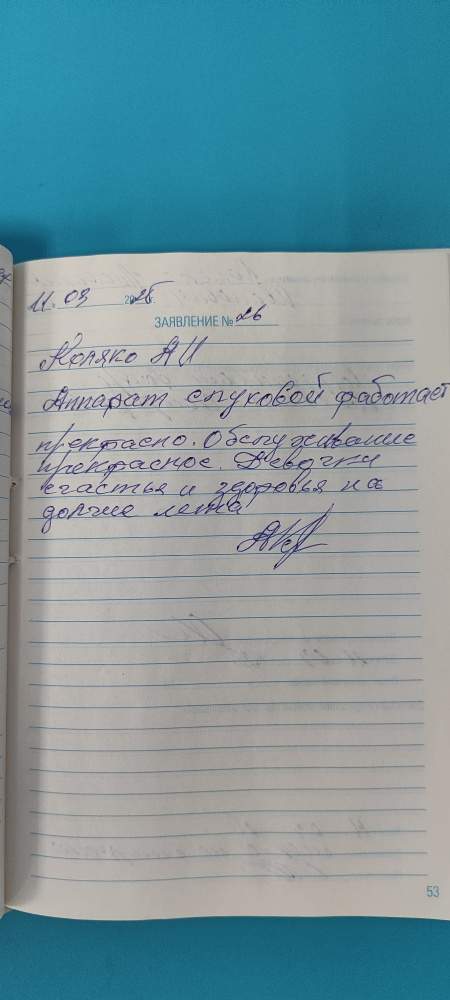 11.03 2025г.
ЗАЯВЛЕНИЕ № 26
Коляко А П
Аппарат слуховой работает
прекрасно. Обслуживание
прекрасное. Девочки
счастья и здоровья на
долгие лета
53